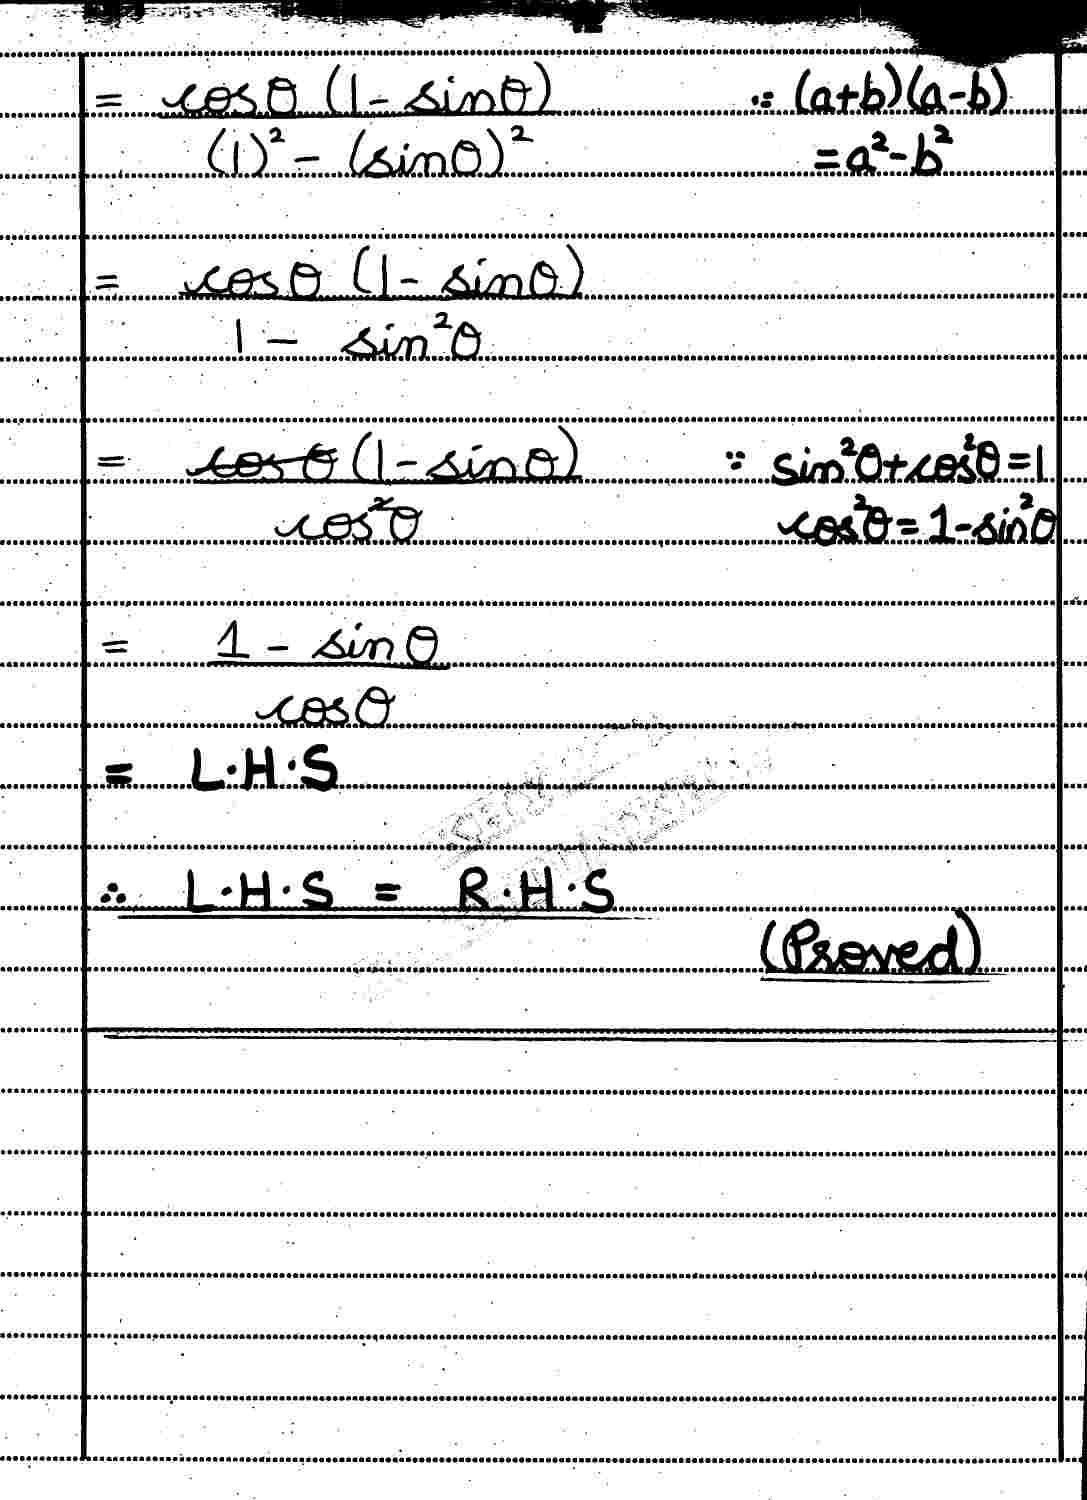 = cosθ (1 - sinθ) ∵ (a+b)(a-b)
(1)² - (sinθ)² = a² - b²
= cosθ (1 - sinθ)
1 - sin²θ
= cosθ (1 - sinθ) ∵ sin²θ + cos²θ = 1
cos²θ cos²θ = 1 - sin²θ
= 1 - sinθ
cosθ
= L.H.S
∴ L.H.S = R.H.S
(Proved)